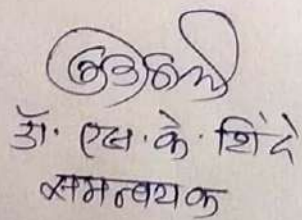 डॉ. एस. के. शिंदे
समन्वयक